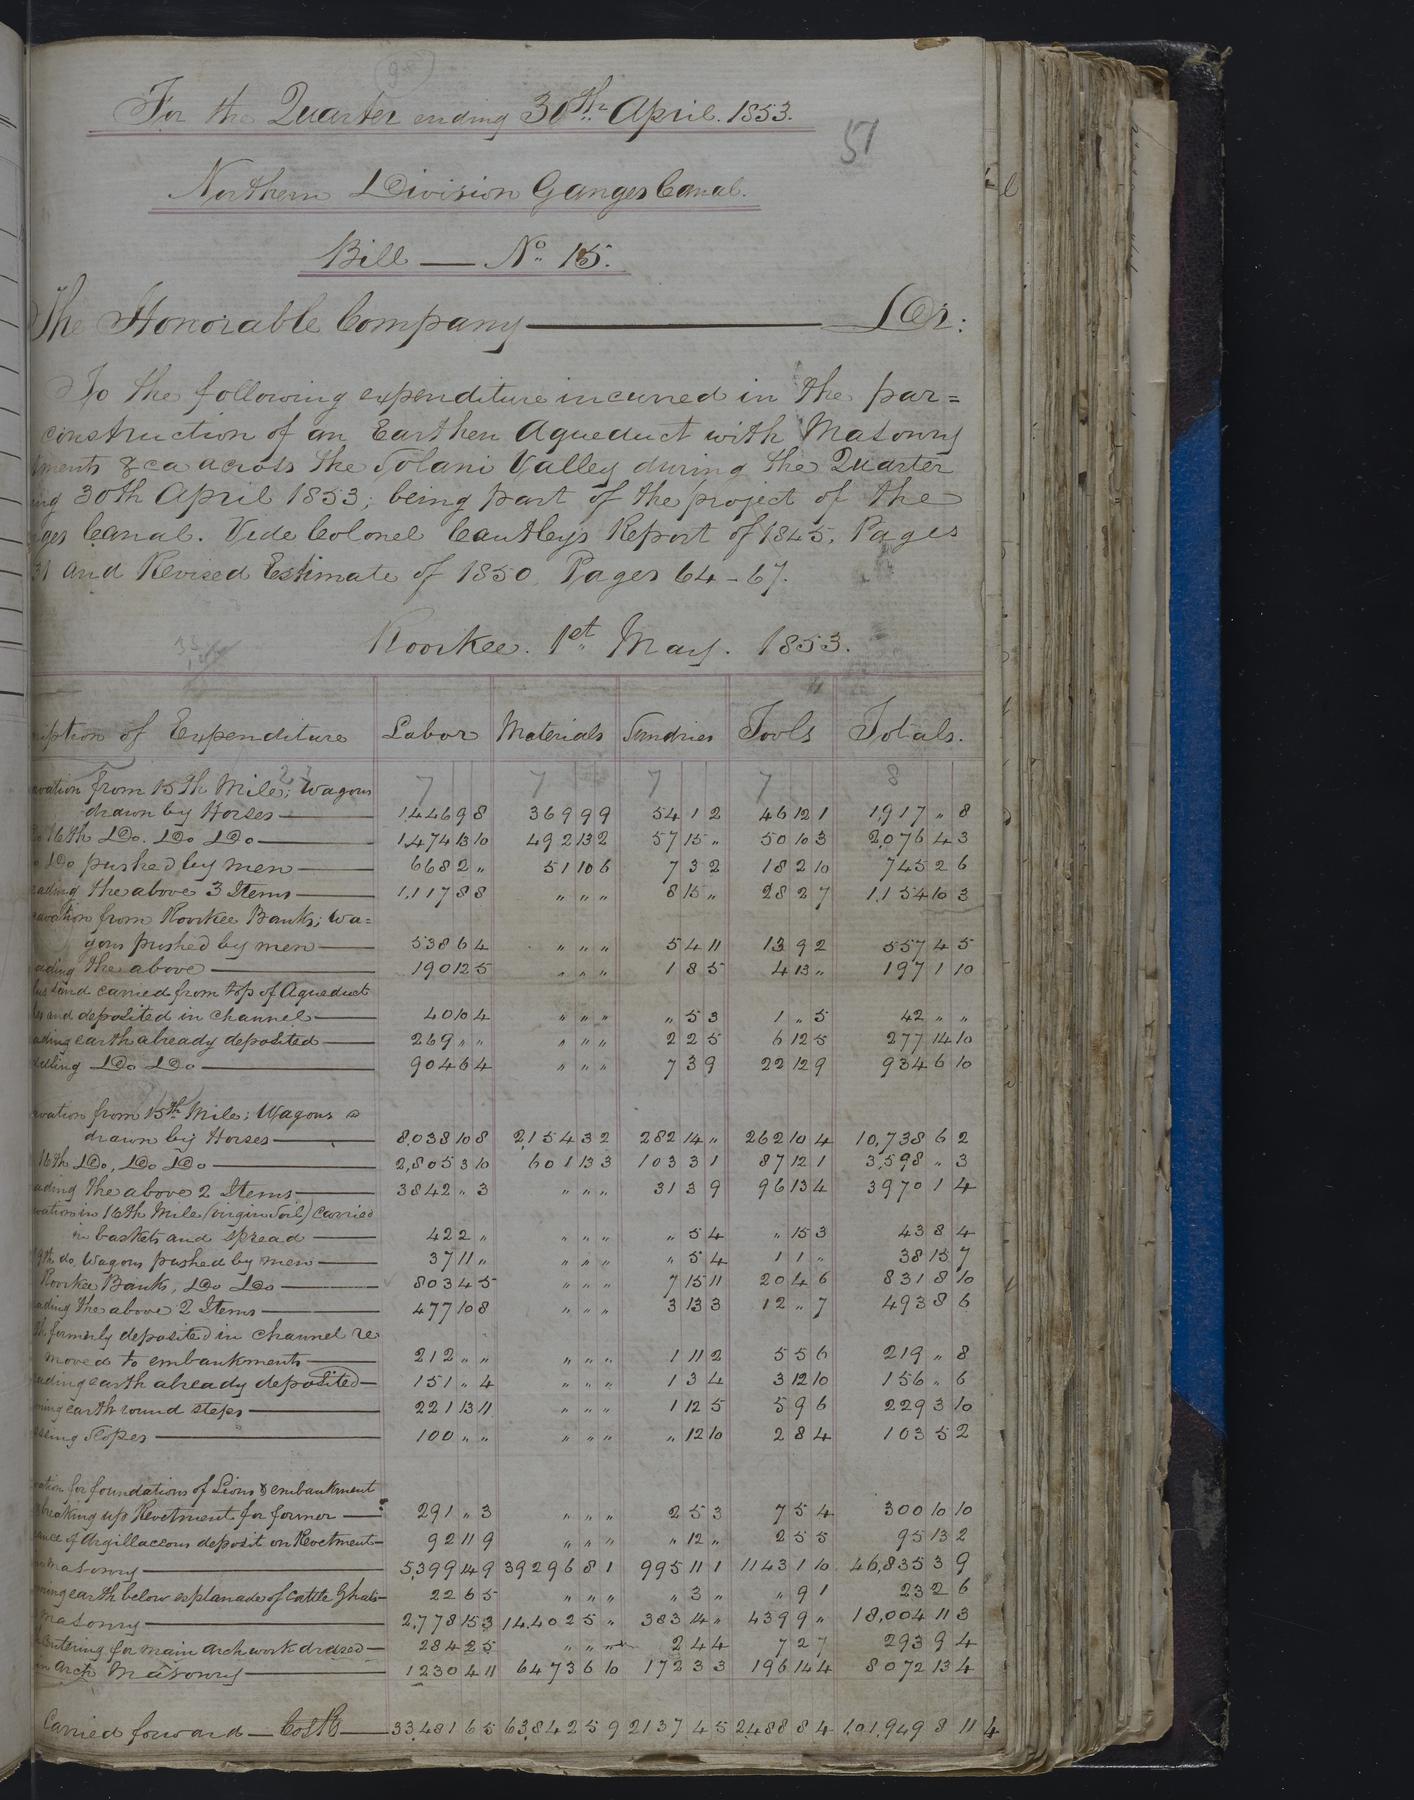 For the Quarter ending 30th April. 1853.
51
Northern Division Ganges Canal.
Bill — No. 15.
The Honorable Company — Dr:
To the following expenditure incurred in the par=
construction of an Earthen Aqueduct with Masonry
ments &ca across the Solani Valley during the Quarter
ing 30th April 1853; being part of the project of the
ges Canal. Vide Colonel Cautley's Report of 1845, Pages
31 and Revised Estimate of 1850 Pages 64-67.
Roorkee. 1st May. 1853.
ription of Expenditure Labor Materials Sundries Tools Totals.
7 7 7 7 8
avation from 15th Mile; Wagons
drawn by Horses — 1,446 9 8 369 9 9 54 1 2 46 12 1 1,917 " 8
Do 16th Do. Do Do — 1,474 13 10 492 13 2 57 15 " 50 10 3 2,076 4 3
Do pushed by men — 668 2 " 51 10 6 7 3 2 18 2 10 745 2 6
ading the above 3 Items — 1,117 8 8 " " " 8 15 " 28 2 7 1,154 10 3
avation from Roorkee Banks; Wa=
gons pushed by men — 538 6 4 " " " 5 4 11 13 9 2 557 4 5
ading the above — 190 12 5 " " " 1 8 5 4 13 " 197 1 10
sand carried from top of Aqueduct
and deposited in channel — 40 10 4 " " " " 5 3 1 " 5 42 " "
ading earth already deposited — 269 " " " " " 2 2 5 6 12 5 277 14 10
dling Do Do — 904 6 4 " " " 7 3 9 22 12 9 934 6 10
avation from 15th Mile; Wagons
drawn by Horses — 8,038 10 8 2,154 3 2 282 14 " 262 10 4 10,738 6 2
16th Do, Do Do — 2,805 3 10 601 13 3 103 3 1 87 12 1 3,598 " 3
ading the above 2 Items — 3842 " 3 " " " 31 3 9 96 13 4 3970 1 4
vation in 16th Mile (virgin soil) carried
in baskets and spread — 42 2 " " " " " 5 4 " 15 3 43 8 4
do Wagons pushed by men — 37 11 " " " " " 5 4 1 1 " 38 15 7
Roorkee Banks, Do Do — 803 4 5 " " " 7 15 11 20 4 6 831 8 10
ading the above 2 Items — 477 10 8 " " " 3 13 3 12 " 7 493 8 6
th formerly deposited in channel re
moved to embankments — 212 " " " " " 1 11 2 5 5 6 219 " 8
ading earth already deposited — 151 " 4 " " " 1 3 4 3 12 10 156 " 6
ming earth round steps — 221 13 11 " " " 1 12 5 5 9 6 229 3 10
ssing Slopes — 100 " " " " " " 12 10 2 8 4 103 5 2
vation for foundations of Lions & embankment
breaking up Revetment for former — 291 " 3 " " " 2 5 3 7 5 4 300 10 10
ance of Argillaceous deposit on Revetment — 92 11 9 " " " " 12 " 2 5 5 95 13 2
masonry — 5,399 14 9 39296 8 1 995 11 1 1143 1 10 46,835 3 9
ming earth below esplanade of Cattle Ghats — 22 6 5 " " " " 3 " " 9 1 23 2 6
masonry — 2,778 15 3 14,402 5 " 383 14 " 439 9 " 18,004 11 3
centering for main arch work dressed — 284 2 5 " " " 2 4 4 7 2 7 293 9 4
in Arch Masonry — 1230 4 11 6473 6 10 172 3 3 196 14 4 8072 13 4
Carried forward — Co's Rs — 33,481 6 5 63,842 5 9 2137 4 5 2,488 8 4 1,01,949 8 11 4